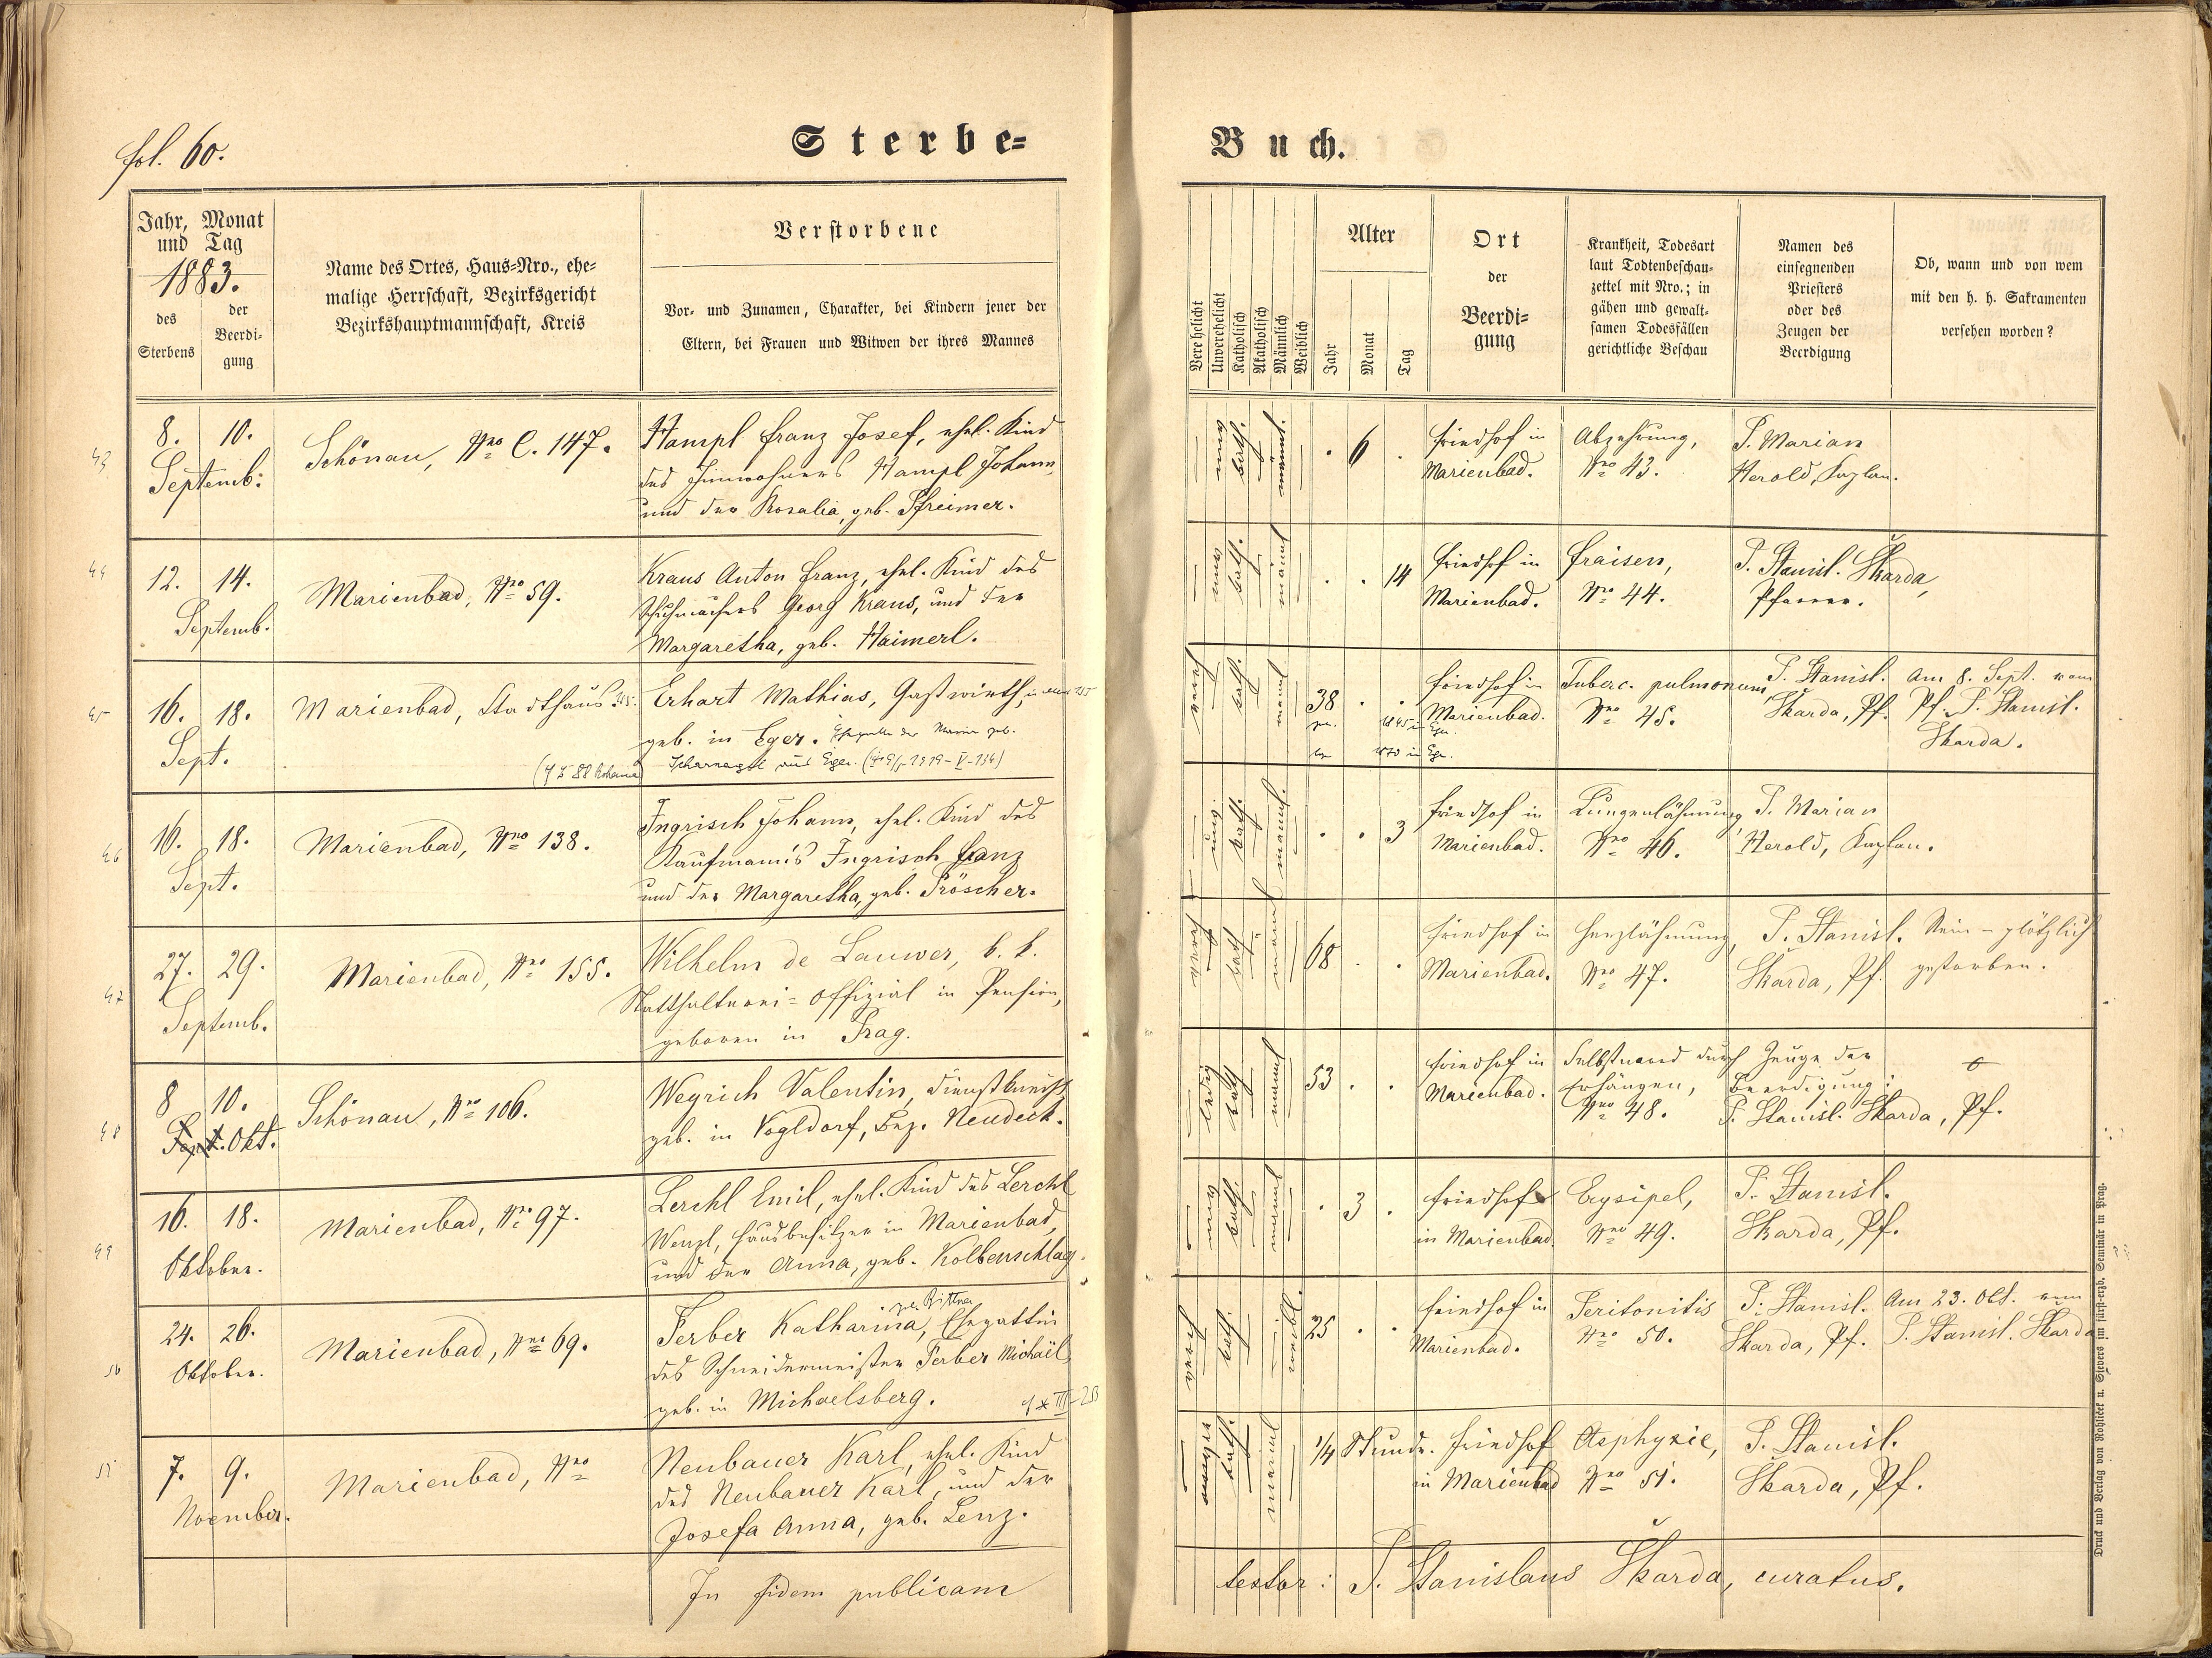 fol. 60.
Sterbe-
Buch.
Jahr, Monat
und Tag
1883.
des
Sterbens
der
Beerdi-
gung
Name des Ortes, Haus-Nro., ehe-
malige Herrschaft, Bezirksgericht
Bezirkshauptmannschaft, Kreis
Verstorbene
Vor- und Zunamen, Charakter, bei Kindern jener der
Eltern, bei Frauen und Witwen der ihres Mannes
Verehelicht
Unverehelicht
Katholisch
Akatholisch
Männlich
Weiblich
Alter
Jahr
Monat
Tag
Ort
der
Beerdi-
gung
Krankheit, Todesart
laut Todtenbeschau-
zettel mit Nro.; in
gähen und gewalt-
samen Todesfällen
gerichtliche Beschau
Namen des
einsegnenden
Priesters
oder des
Zeugen der
Beerdigung
Ob, wann und von wem
mit den h. h. Sakramenten
versehen worden?
43
8. 10.
Septemb:
Schönau, Nro C. 147.
Hampl Franz Josef, ehel. Kind
des Inwohners Hampl Johann,
und der Rosalia, geb. Pfreimer.
männl.
6
Friedhof in
Marienbad.
Abzehrung,
Nro 43.
P. Marian
Herold, Kaplan.
44
12. 14.
Septemb.
Marienbad, Nro 59.
Kraus Anton Franz, ehel. Kind des
Schuhmachers Georg Kraus, und der
Margaretha, geb. Haimerl.
kath.
männl
14
Friedhof in
Marienbad.
Fraisen,
Nro 44.
P. Stanisl. Škarda,
Pfarrer.
45
16. 18.
Sept.
Marienbad, Stadthaus
Erhart Mathias, Gastwirth,
geb. in Eger. Ehegatte der Maria geb.
aus Eger.
kath.
männl
38
Friedhof in
Marienbad.
Tuberc. pulmonum,
Nro 45.
P. Stanisl.
Skarda, Pf.
Am 8. Sept. vom
Pf. P. Stanisl.
Skarda.
46
16. 18.
Sept.
Marienbad, Nro 138.
Ingrisch Johann, ehel. Kind des
Kaufmann's Ingrisch Franz
und der Margaretha, geb. Pröscher.
kath.
männl.
3
Friedhof in
Marienbad.
Lungenlähmung,
Nro 46.
P. Marian
Herold, Kaplan.
47
27. 29.
Septemb.
Marienbad, Nro 155.
Wilhelm de Lauwer, k. k.
Statthalterei-Offizial in Pension,
geboren in Prag.
kath
männl
68
Friedhof in
Marienbad.
Herzlähmung,
Nro 47.
P. Stanisl.
Skarda, Pf.
Nein - plötzlich
gestorben.
48
8 10.
Sept. Okt.
Schönau, Nro 106.
Wegrich Valentin, Dienstknecht,
geb. in Vogldorf, Bez. Neudeck.
ledig
kath
männl
53
Friedhof in
Marienbad.
Selbstmord durch
Erhängen,
Nro 48.
Zeuge der
Beerdigung:
P. Stanisl. Skarda, Pf.
49
16. 18.
Oktober.
Marienbad, Nro 97.
Lerchl Emil, ehel. Kind des Lerchl
Wenzl, Hausbesitzer in Marienbad,
und der Anna, geb. Kolbenschlag.
kath.
männl
3
Friedhof
in Marienbad
Erysipel,
Nro 49.
P. Stanisl.
Skarda, Pf.
50
24. 26.
Oktober.
Marienbad, Nro 69.
geb. Bittner
Ferber Katharina, Ehegattin
des Schneidermeister Ferber Michäel,
geb. in Michaelsberg.
kath.
weibl.
25
Friedhof in
Marienbad.
Peritonitis
Nro 50.
P. Stanisl.
Skarda, Pf.
Am 23. Okt. vom
P. Stanisl. Skarda
51
7. 9.
November.
Marienbad, Nro
Neubauer Karl, ehel. Kind
des Neubauer Karl, und der
Josefa Anna, geb. Lenz.
kath.
männl
1/4 Stunde.
Friedhof
in Marienbad
Asphyxie,
Nro 51.
P. Stanisl.
Skarda, Pf.
In fidem publicam
testor: P. Stanislaus Škarda, curatus.
Druck und Verlag von Rohlicek u. Sievers im fürst-erzb. Seminär in Prag.